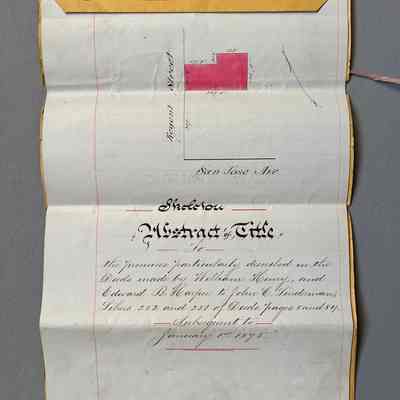 Regent Street
San Jose Ave
Skeleton
Abstract of Title
To
the premises particularly described in the
Deeds made by William Henry, and
Edward B. Harper to John C. Lindeman,
Libers 252 and 255 of Deeds pages 8 and 84,
Subsequent to
January 1st 1895